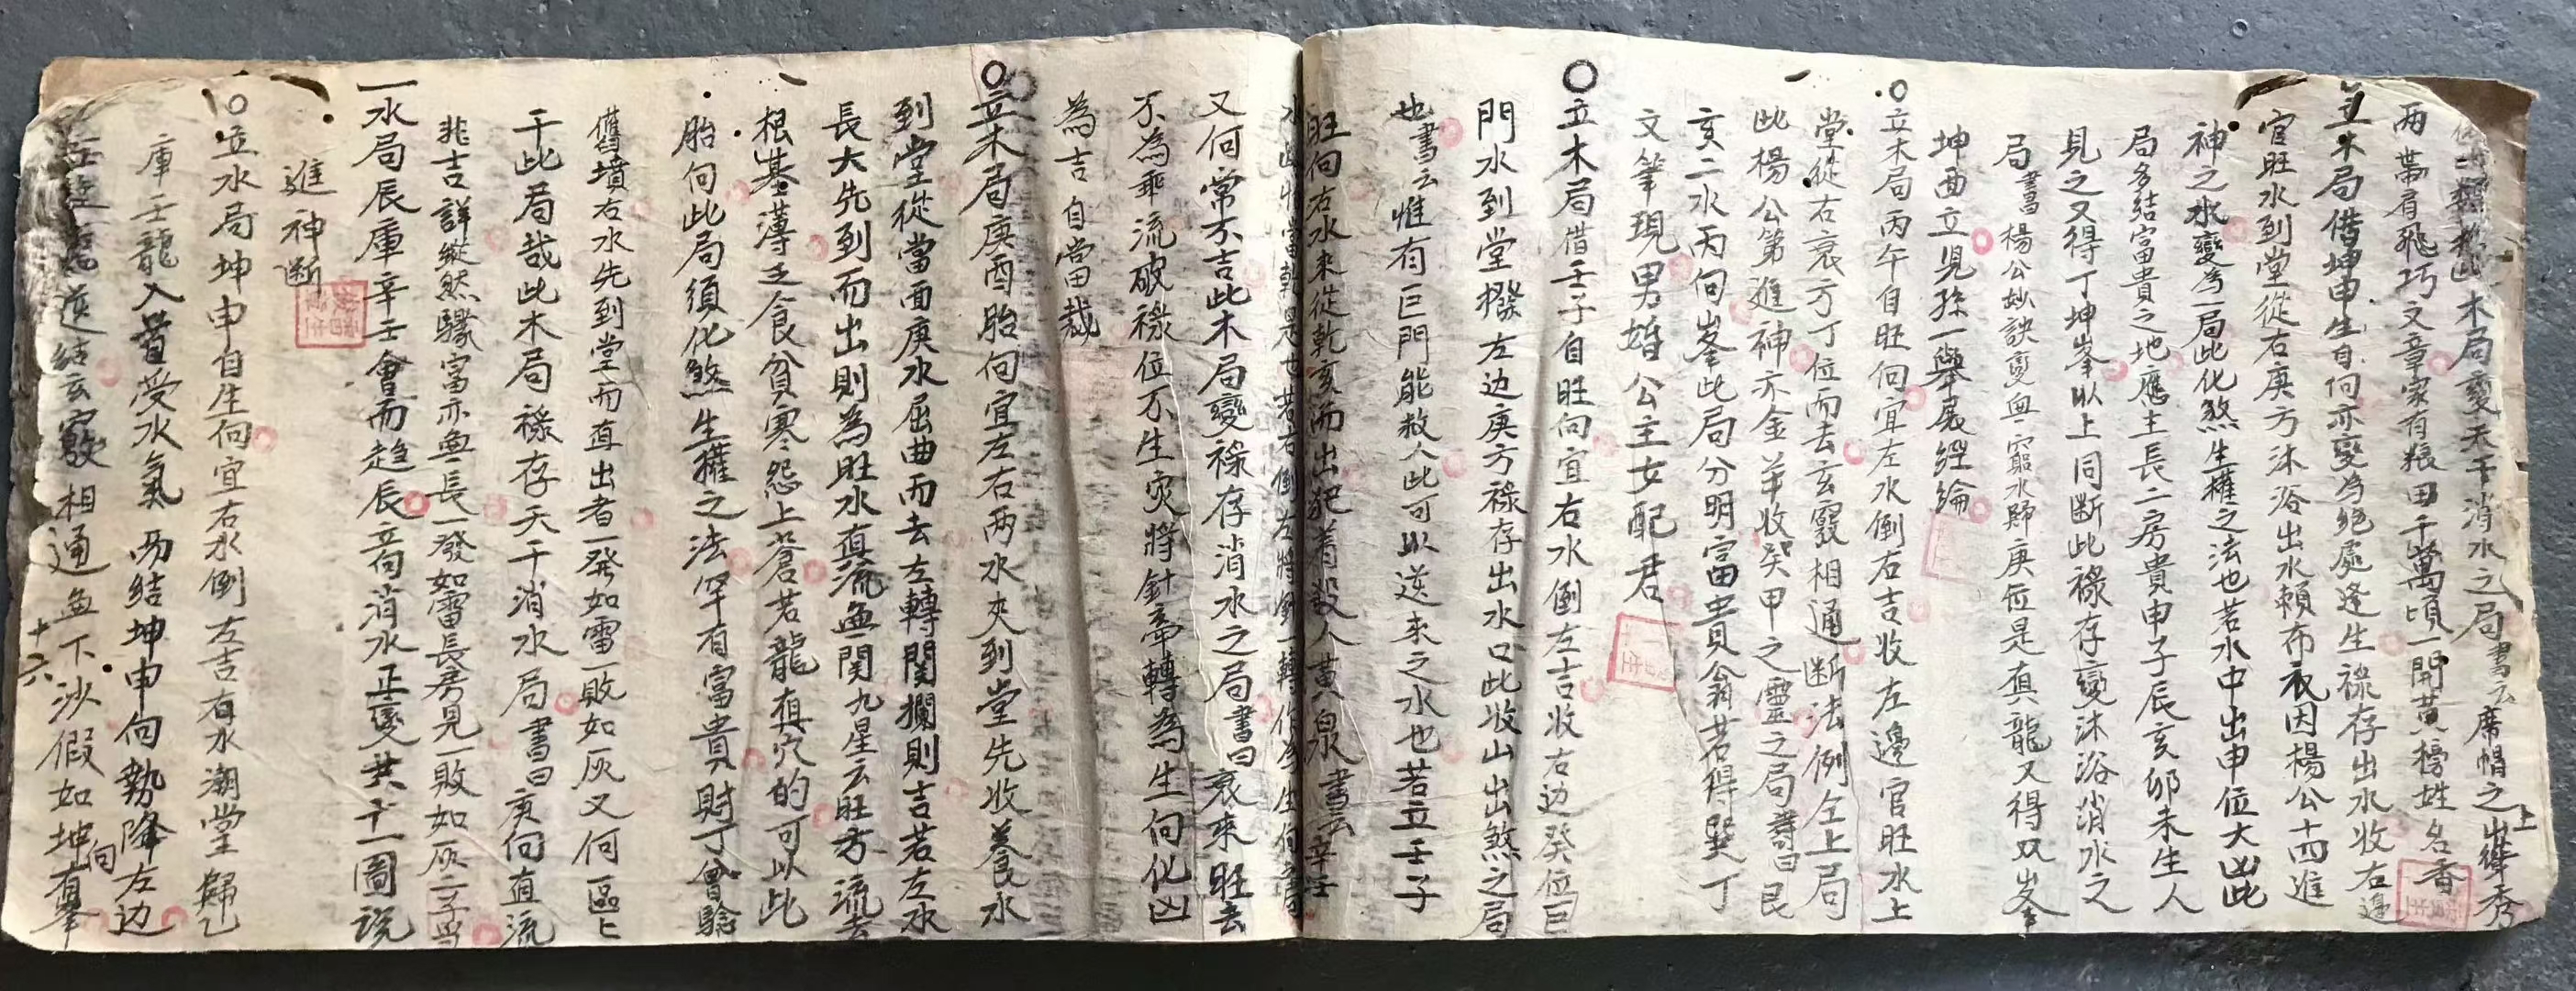 木局變天干消水之局書云席帽之上峯秀
两帶肩飛巧文章家有粮田千萬頃一開黃榜姓名香
立木局借坤申生自向亦變為絕處逢生祿存出水收右邊
官旺水到堂從右庚方沐浴出水賴布衣因楊公十四進
神之水變為一局此化煞生權之法也若水中出申位大凶此
局多結富貴之地應主長二房貴申子辰亥卯未生人
見之又得丁坤峯以上同斷此祿存變沐浴消水之
局書楊公妙訣变無窮水歸庚位是真龍又得双峯
坤西立見孫一舉展經綸
立木局丙午自旺向宜左水倒右吉收左邊官旺水上
堂從右衰方丁位而去玄竅相通断法例仝上局
此楊公第進神亦金羊收癸甲之靈之局書曰艮
亥二水丙向峯此局分明富貴翁若得巽丁
文筆現男婚公主女配君
立木局借壬子自旺向宜右水倒左吉收右边癸位巨
門水到堂撥左边庚方祿存出水口此收山出煞之局
也書云惟有巨門能救人此可以送来之水也若立壬子
旺向右水来從乾亥而出犯着殺人黃泉書云辛壬
水此將當乾是也若右倒左將針一轉作為生向之局
又何常不吉此木局變祿存消水之局書曰衰來旺去
不為乖流破祿位不生灾將針牽轉為生向化凶
為吉自當裁
立木局庚酉胎向宜左右两水夾到堂先收養水
到堂從當面庚水屈曲而去左轉関攔則吉若左水
長大先到而出則為旺水真流無関九星云旺方流去
根基薄乏食貧寒怨上蒼若龍真穴的可以此
胎向此局須化煞生權之法罕有富貴財丁曾驗
舊墳右水先到堂而直出者一發如雷一敗如灰又何區々
于此局哉此木局祿存天干消水局書曰庚向直流
非吉詳縱然驟富亦無長一發如雷長房見一敗如灰
一水局辰庫辛壬會而趋辰音向消水正變共十一圖说
進神斷
立水局坤申自生向宜右水倒左吉右水潮堂歸乙
庫壬龍入首受水氣而結坤申向勢降左边
結玄竅相通無下沙假如坤向有峯
十六